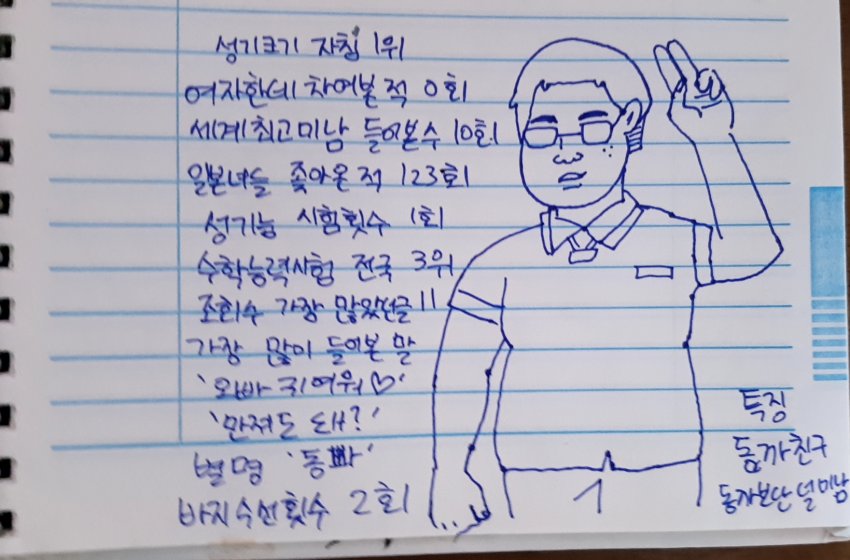 성기크기 자칭 1위
여자한테 차여본 적 0회
세계최고미남 들어본수 10회
일본녀들 쫓아온적 123회
성기능 시험횟수 1회
수학능력시험 전국 3위
조회수 가장 많았던글 11
가장 많이 들어본 말
'오빠 귀여워♡'
'만져도 돼?'
별명 '동빠'
바지수선횟수 2회
1
특징
동까친구
동까보단 덜미남